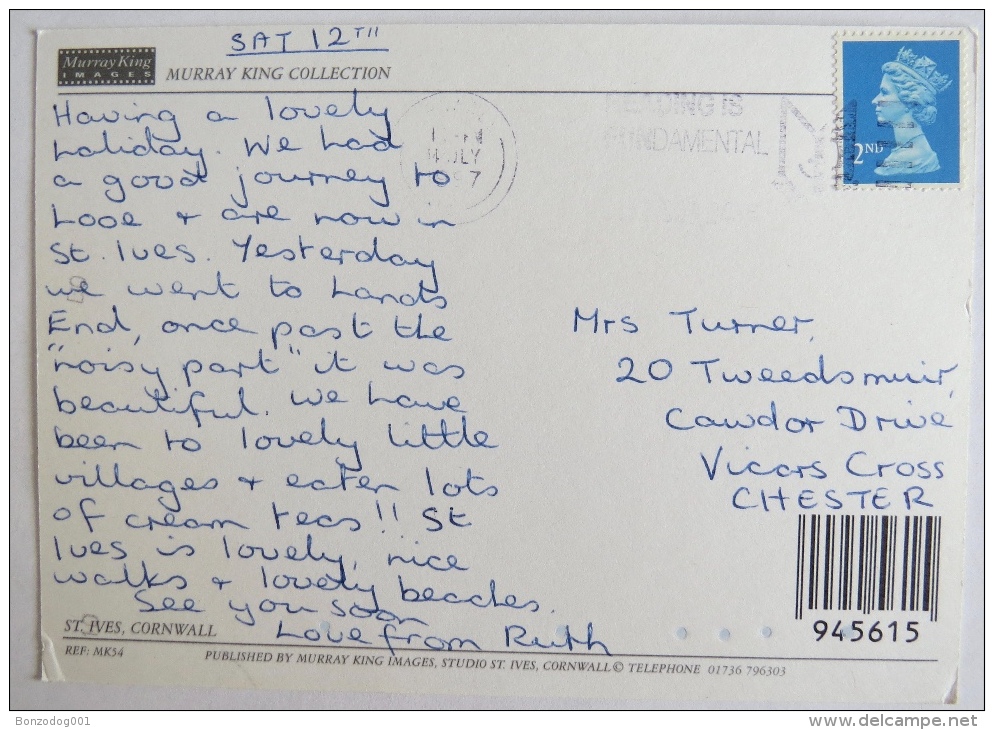 SAT 12TH
Murray King
IMAGES
MURRAY KING COLLECTION
Having a lovely
holiday. We had
a good journey to
Looe + are now in
St. Ives. Yesterday
we went to Lands
End, once past the
"noisy part" it was
beautiful. We have
been to lovely little
villages + eaten lots
of cream teas!! St
Ives is lovely, nice
walks + lovely beaches.
See you soon
Love from Ruth
READING IS
FUNDAMENTAL
JLY
7
2ND
Mrs Turner,
20 Tweedsmuir,
Cawdor Drive
Vicars Cross
CHESTER
945615
ST. IVES, CORNWALL
REF: MK54
PUBLISHED BY MURRAY KING IMAGES, STUDIO ST. IVES, CORNWALL © TELEPHONE 01736 796303
Bonzodog001
www.delcampe.net